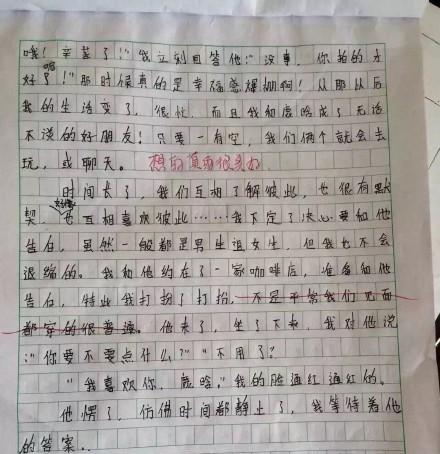 哦！辛苦了！"我立刻回答他"没事，你拍的才
好了！"那时候真的是幸福感爆棚啊！从那以后
我的生活变了，很忙，而且我和鹿晗成了无话
不说的好朋友！只要一有空，我们俩个就会去
玩，或聊天。想的真面很美好
时间长了，我们互相了解彼此，也很有默
契，也互相喜欢彼此……我下定了决心要和他
告白，虽然一般都是男生追女生，但我也不会
退缩的。我和他约在了一家咖啡店，准备和他
告白，特此我打扮了打扮，不是平常我们见面
都穿的很普通。他来了，坐了下来，我对他说
："你要不要点什么？""不用了？
"我喜欢你，鹿晗。"我的脸通红通红的。
他愣了，仿佛时间都静止了，我等待着他
的答案..